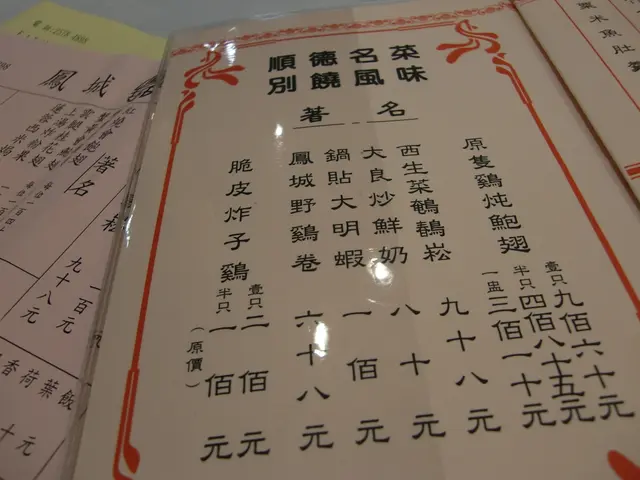 順德名菜
別饒風味
著名
原隻鷄炖鮑翅
壹只九佰六十元
半只四佰八十五元
一盅三佰一十元
西生菜鵪鶉崧 九十八元
大良炒鮮奶 八十元
鍋貼大明蝦 一佰元
鳳城野鷄卷 六十八元
脆皮炸子鷄
壹只二佰元
半只一佰元
(原價)
粟米魚肚
鳳城
著名
一百元
九十八元
香荷葉飯
十元